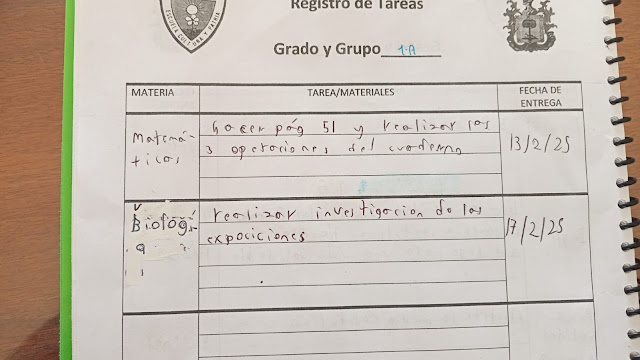 Registro de Tareas
ESCUELA CULTURA Y PATRIA
Grado y Grupo 1.A
MATERIA
TAREA/MATERIALES
FECHA DE
ENTREGA
Matemá-
ticas
hacer pág 51 y realizar las
3 operaciones del cuaderno
13/2/25
Biologí-
a
realizar investigacion de las
expociciones
17/2/25